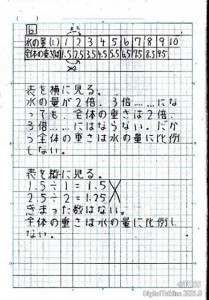 6
水の量(L) 1 2 3 4 5 6 7 8 9 10
全体の重さ(kg) 1.5 2.5 3.5 4.5 5.5 6.5 7.5 8.5 9.5
表を横に見る。
水の量が2倍、3倍……にな
っても、全体の重さは2倍、
3倍……にはならない。だか
ら全体の重さは水の量に比例
しない。
表を縦に見る。
1.5÷1=1.5
2.5÷2=1.25
きまった数はない。
全体の重さは水の量に比例し
ない。